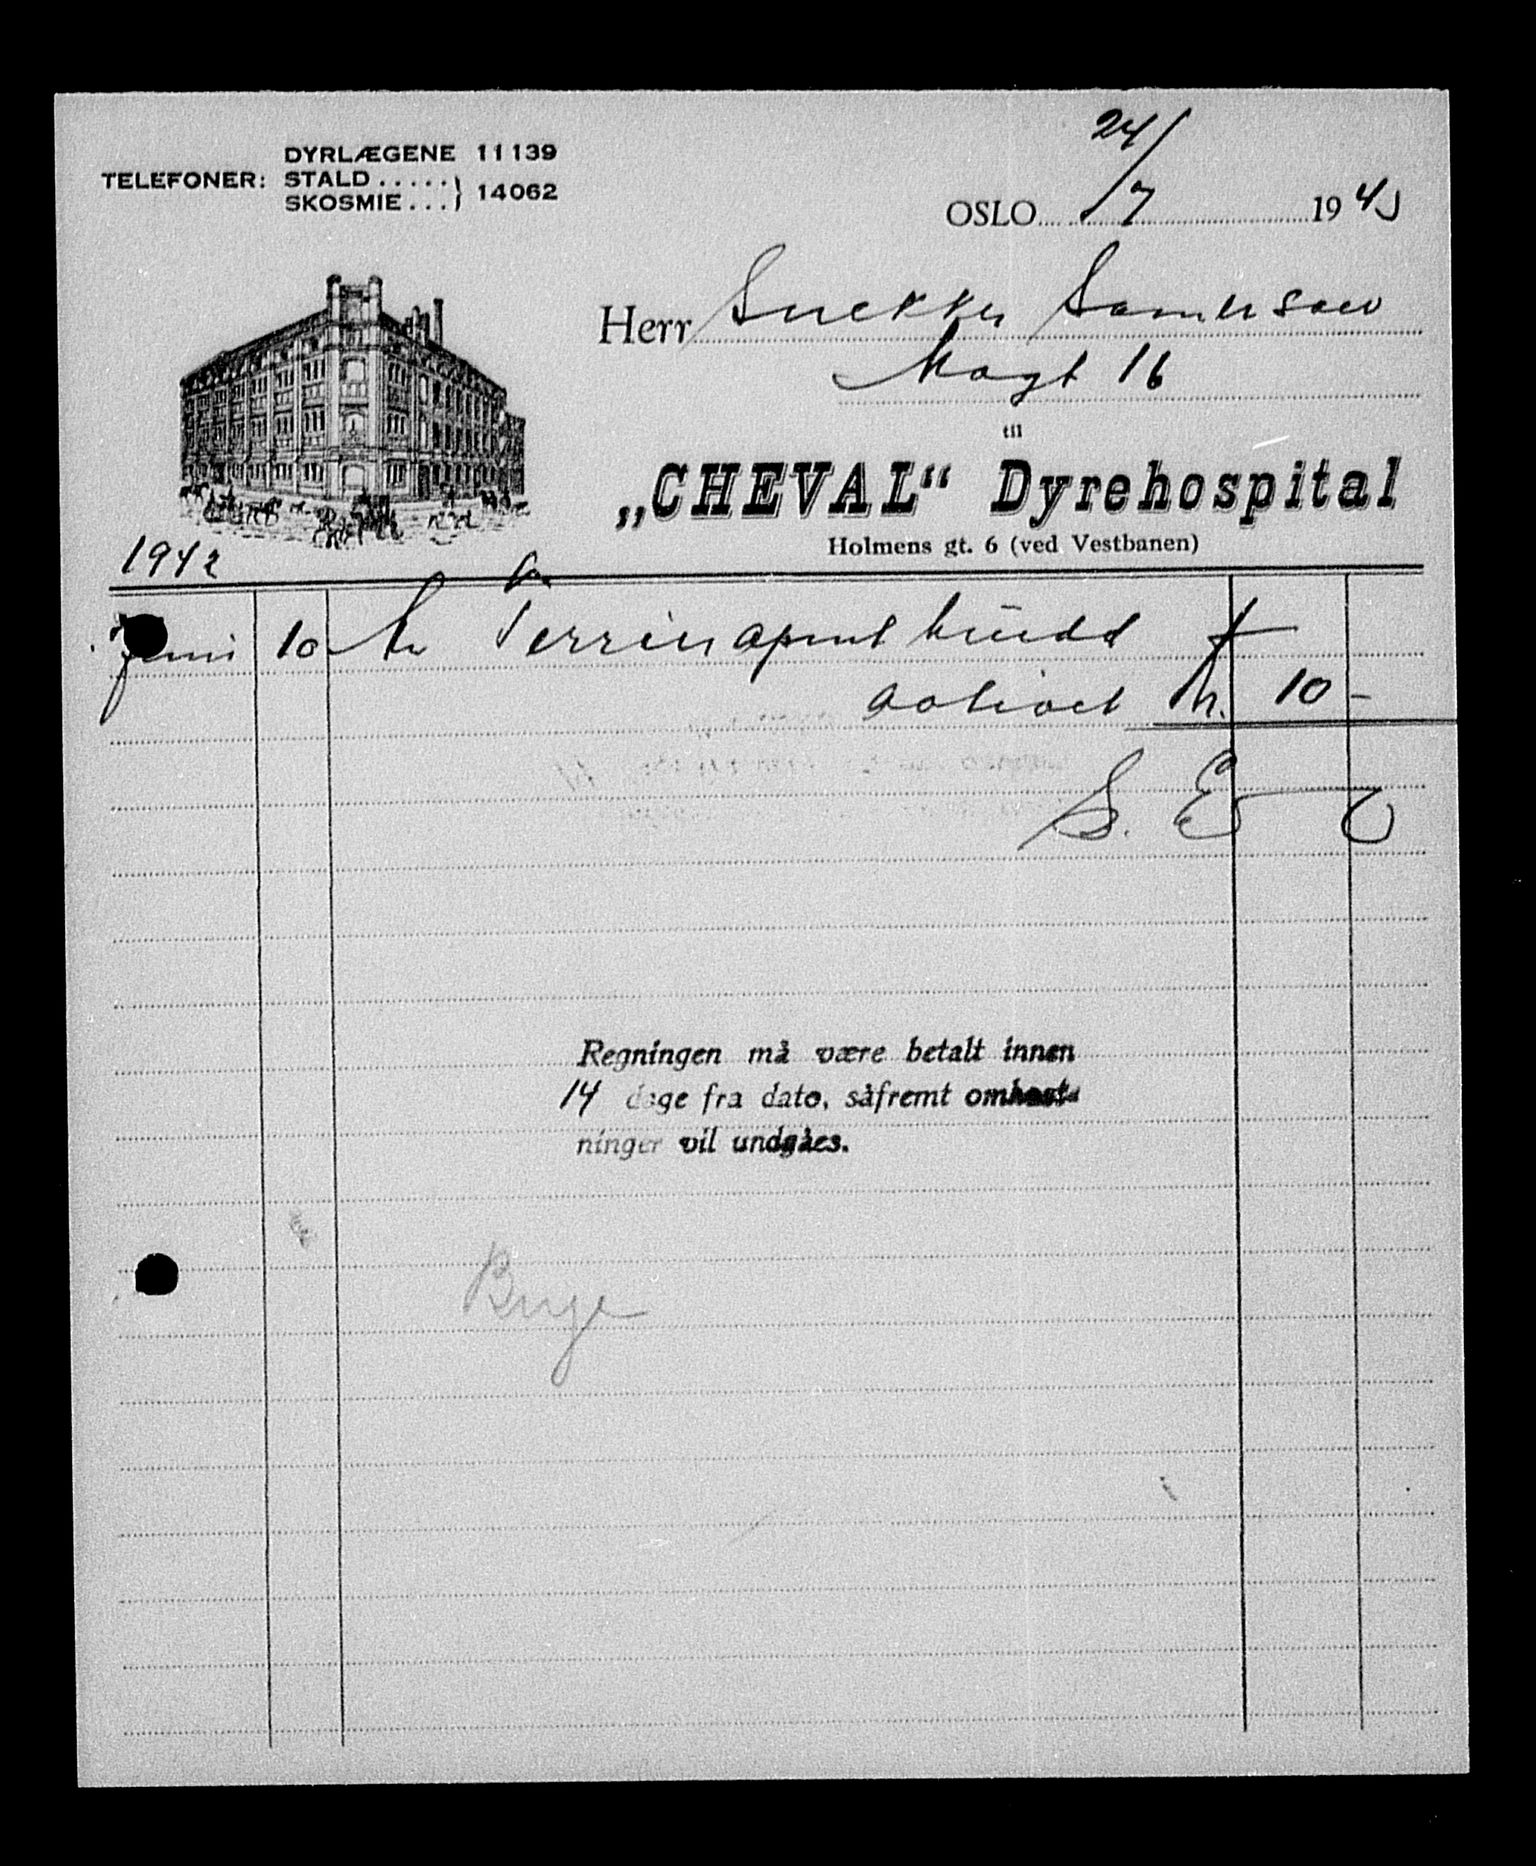 DYRLÆGENE 11139
TELEFONER: STALD.....} 14062
SKOSMIE...}
24/7
OSLO 1943
Herr Snekker Samuelsen
16
til
„CHEVAL“ Dyrehospital
Holmens gt. 6 (ved Vestbanen)
1942
Juni 10 hund
avlivet kr. 10 -
S. E
Regningen må være betalt innen
14 dage fra dato, såfremt omkost-
ninger vil undgåes.